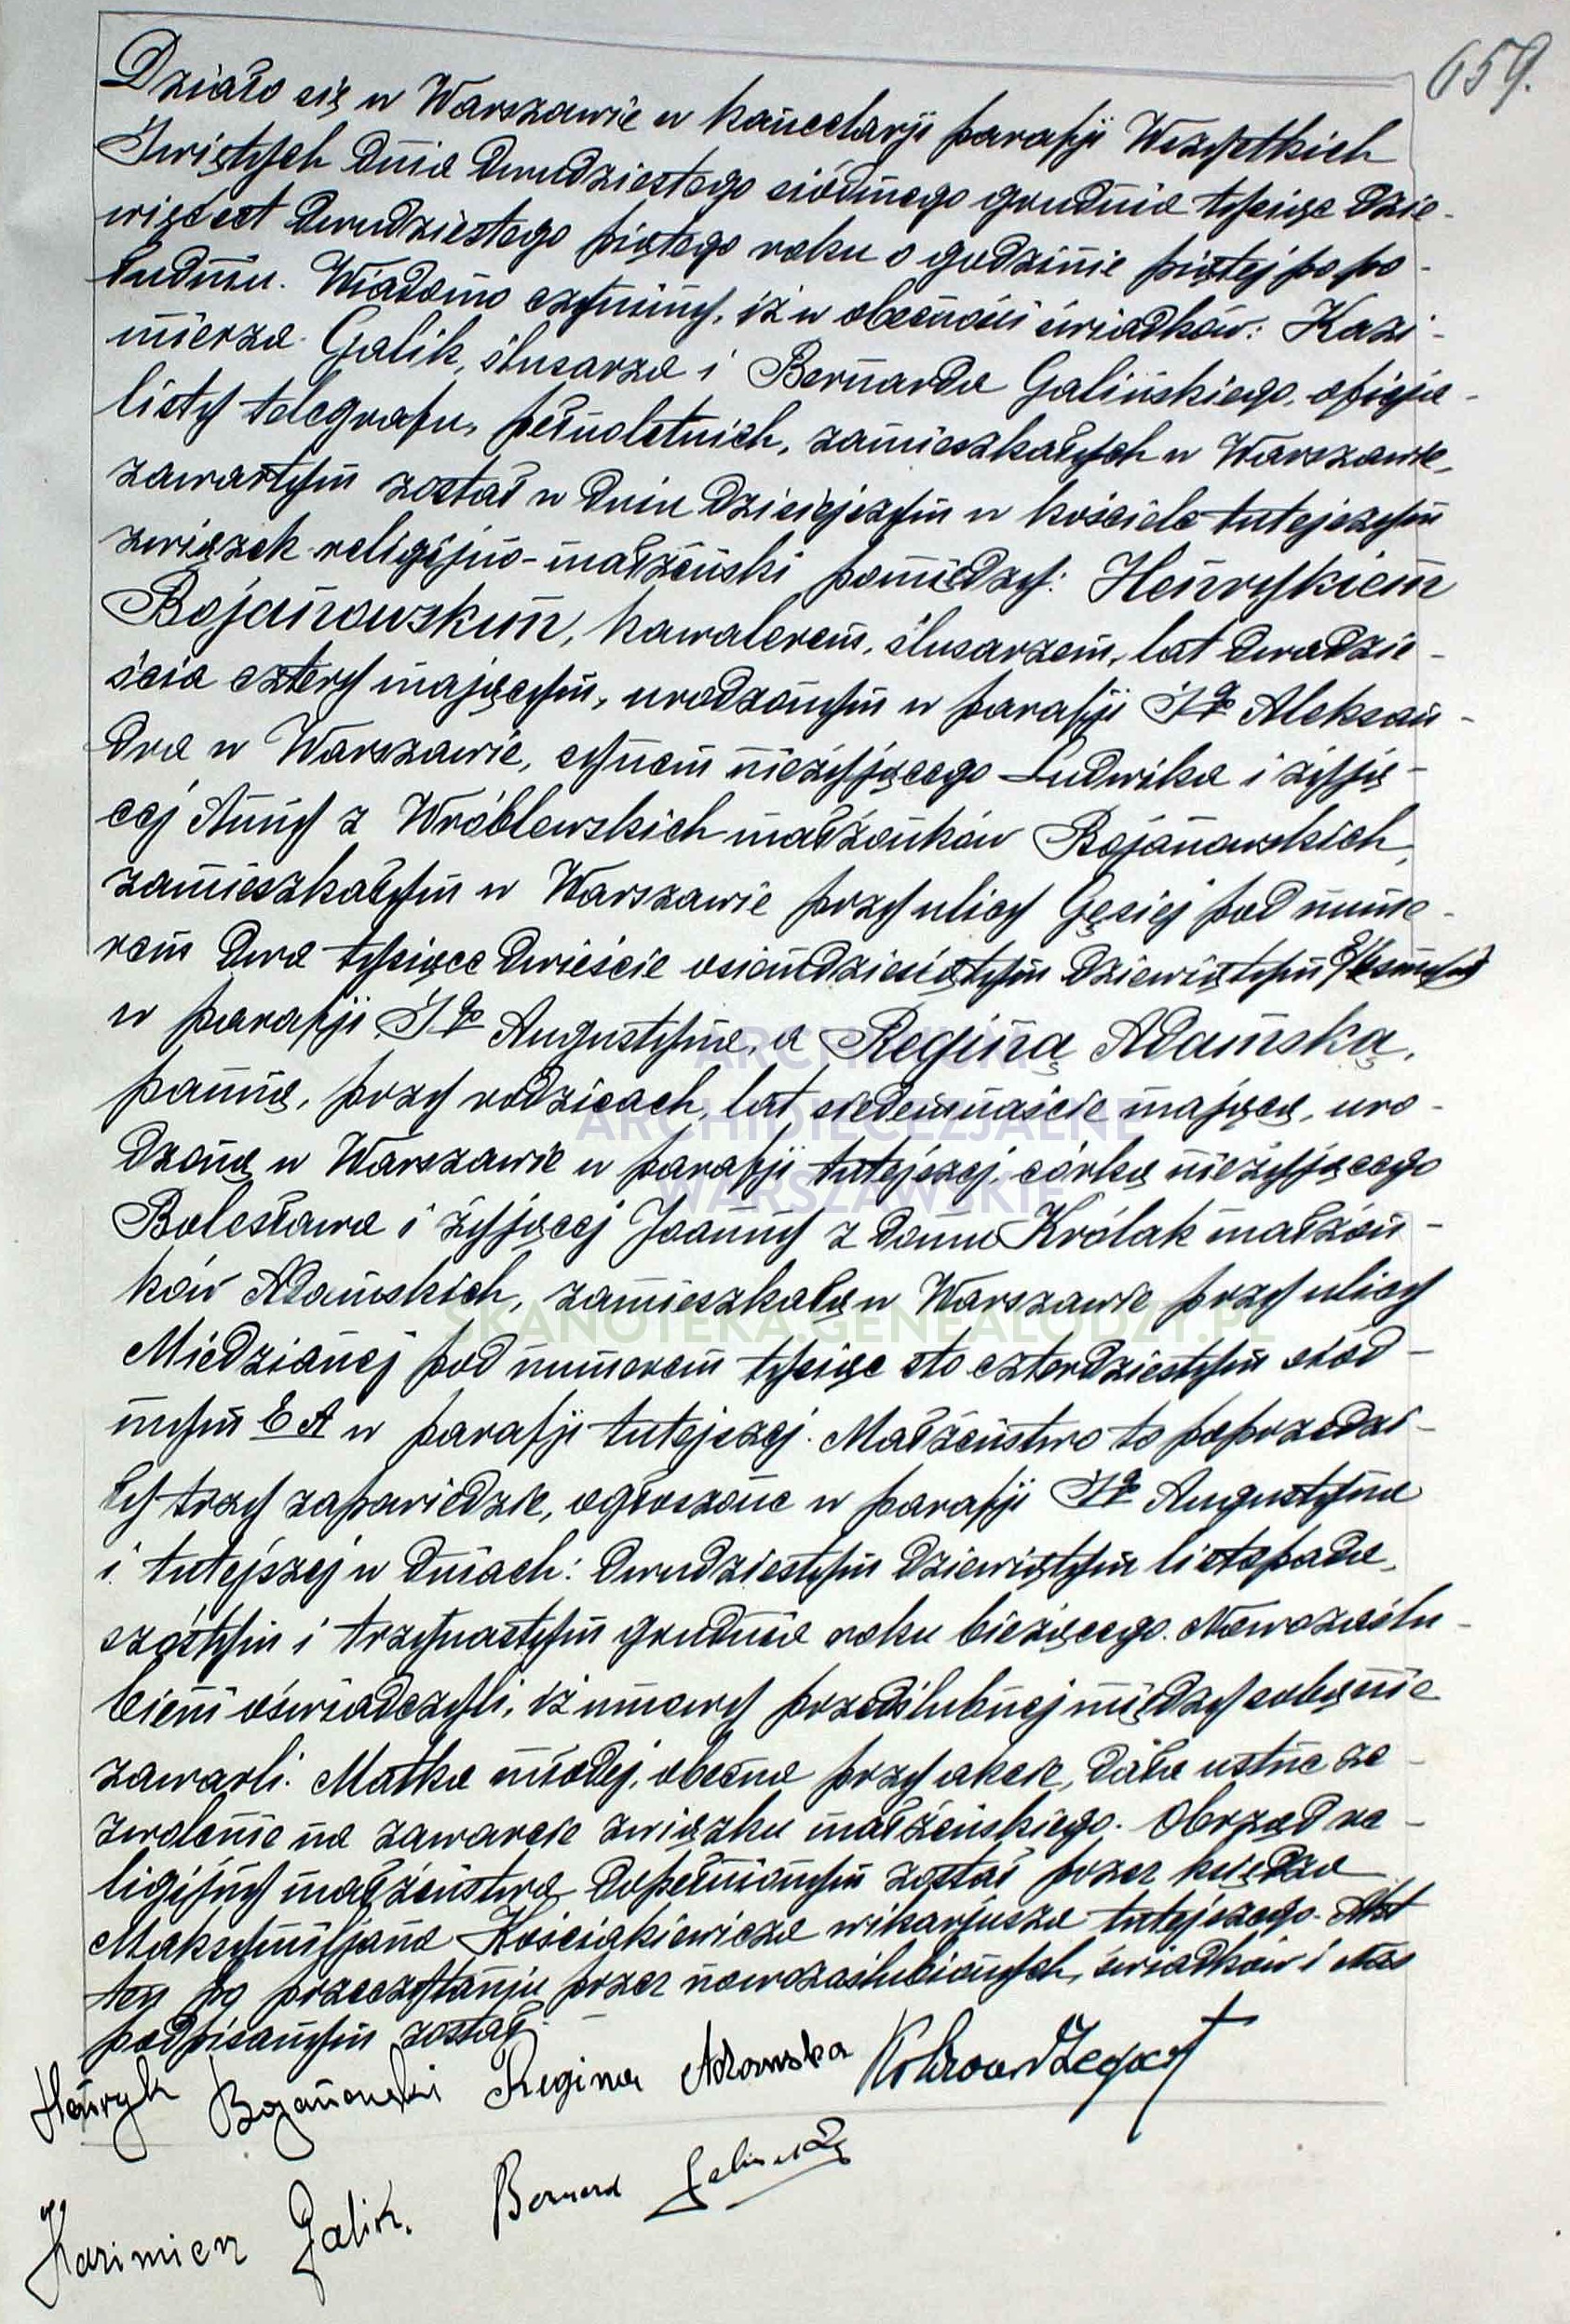 659.
Działo się w Warszawie w kancelarji parafji Wszystkich
Świętych dnia dwudziestego siódmego grudnia tysiąc dzie-
więćset dwudziestego piątego roku o godzinie piątej po po-
łudniu. Wiadomo czynimy, iż w obecności świadków: Kazi-
mierza Galik, ślusarza i Bernarda Galińskiego, oficja-
listy telegrafu, pełnoletnich, zamieszkałych w Warszawie,
zawartym został w dniu dzisiejszym w kościele tutejszym
związek religijno-małżeński pomiędzy: Henrykiem
Bojanowskim, kawalerem, ślusarzem, lat dwadzie-
ścia cztery mającym, urodzonym w parafji Śgo Aleksan-
dra w Warszawie, synem nieżyjącego Ludwika i żyją-
cej Anny z Wróblewskich małżonków Bojanowskich,
zamieszkałym w Warszawie przy ulicy Gęsiej pod nume-
rem dwa tysiące dwieście osiemdziesiątym dziewiątym
w parafji Śgo Augustyna, a Reginą Adamską,
panną, przy rodzicach, lat siedemnaście mającą, uro-
dzoną w Warszawie w parafji tutejszej, córką nieżyjącego
Bolesława i żyjącej Joanny z domu Królak małżon-
ków Adamskich, zamieszkałą w Warszawie przy ulicy
Miedzianej pod numerem tysiąc sto czterdziestym siód-
mym E A w parafji tutejszej. Małżeństwo to poprzedzi-
ły trzy zapowiedzie, ogłoszone w parafji Śgo Augustyna
i tutejszej w dniach: dwudziestym dziewiątym listopada,
szóstym i trzynastym grudnia roku bieżącego. Nowozaślu-
bieni oświadczyli, iż umowy przedślubnej między sobą nie
zawarli. Matka młodej, obecna przy akcie, dała ustne ze-
zwolenie na zawarcie związku małżeńskiego. Obrzęd re-
ligijny małżeństwa dopełnionym został przez księdza
Maksymiljana Kościakiewicza wikarjusza tutejszego. Akt
ten po przeczytaniu przez nowozaślubionych, świadków i Nas
podpisanym został.
Henryk Bojanowski Regina Adamska
Kazimierz Galik. Bernard Galiński
ARCHIWUM
ARCHIDIECEZJALNE
WARSZAWSKIE
SKANOTEKA.GENEALODZY.PL